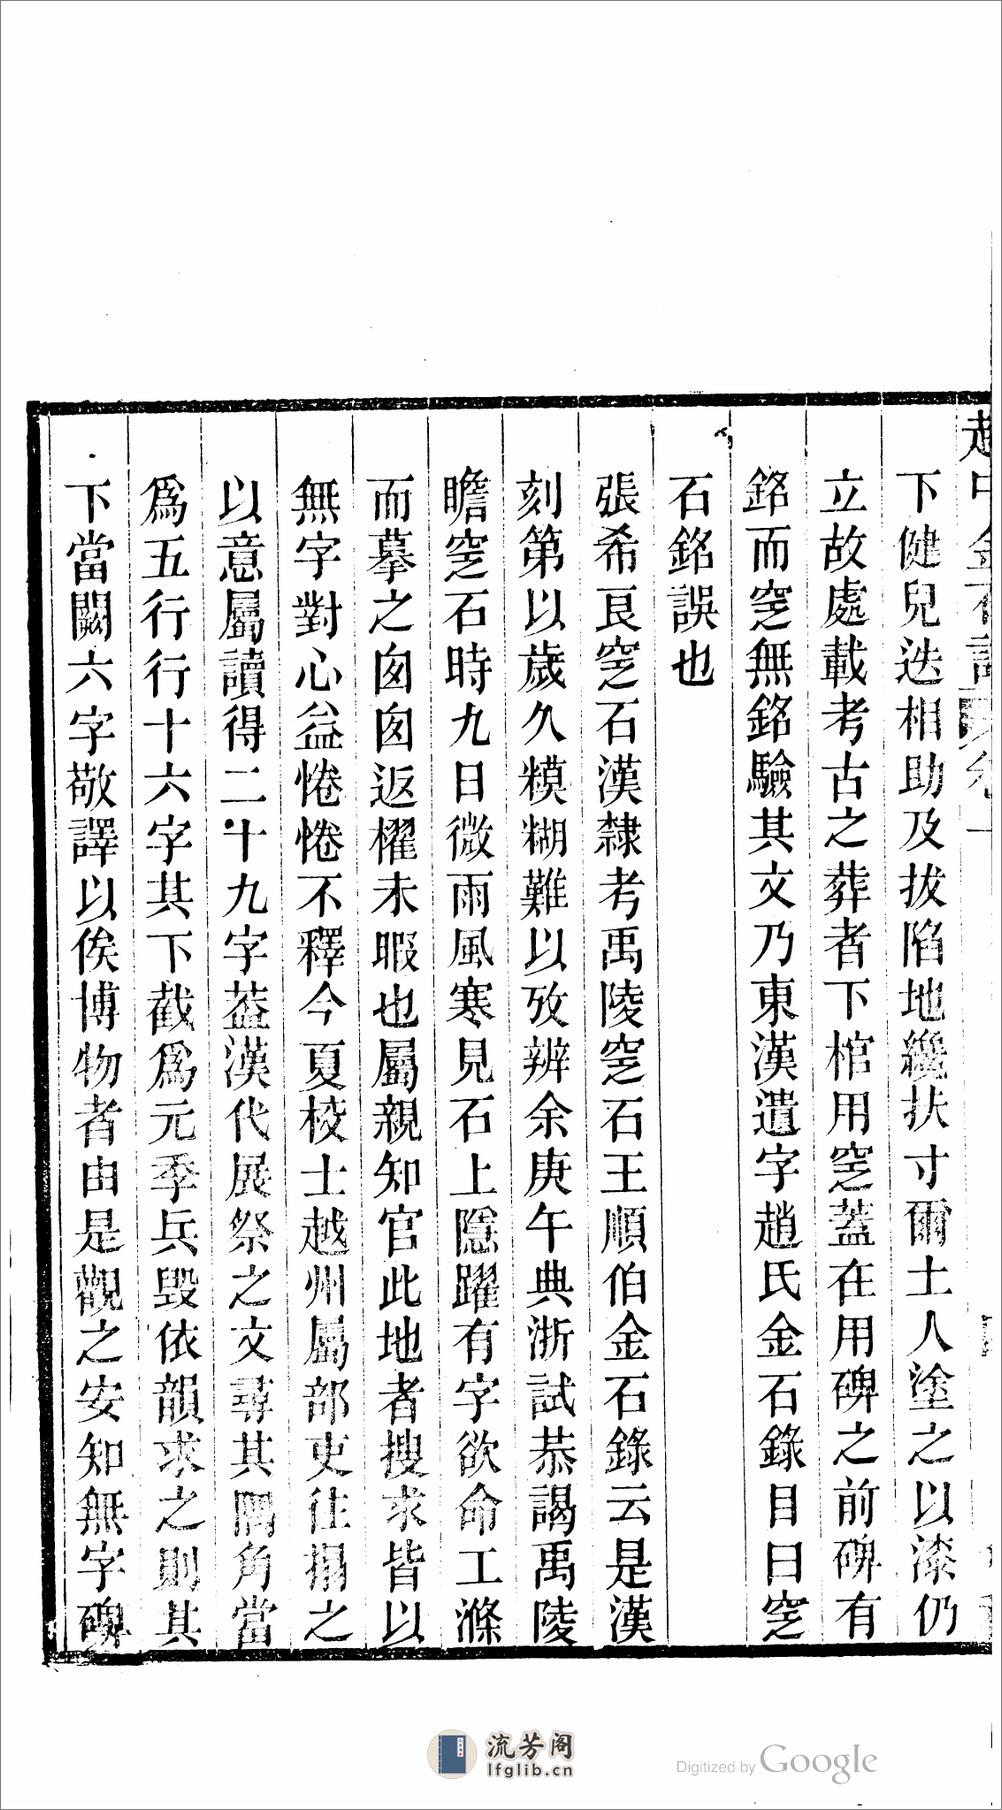 越中金石記
下健兒迭相助及拔陷地纔扶寸爾土人塗之以漆仍
立故處載考古之葬者下棺用窆蓋在用碑之前碑有
銘而窆無銘驗其文乃東漢遺字趙氏金石錄目曰窆
石銘誤也
張希良窆石漢隸考禹陵窆石王順伯金石錄云是漢
刻第以歲久糢糊難以攷辨余庚午典浙試恭謁禹陵
瞻窆石時九日微雨風寒見石上隱躍有字欲命工滌
而摹之囪囪返櫂未暇也屬親知官此地者搜求皆以
無字對心益惓惓不釋今夏校士越州屬部吏往搨之
以意屬讀得二十九字葢漢代展祭之文尋其隅角當
爲五行行十六字其下截爲元季兵毀依韻求之則其
下當闕六字敬譯以俟博物者由是觀之安知無字碑
流芳阁
lfglib.cn
Digitized by Google